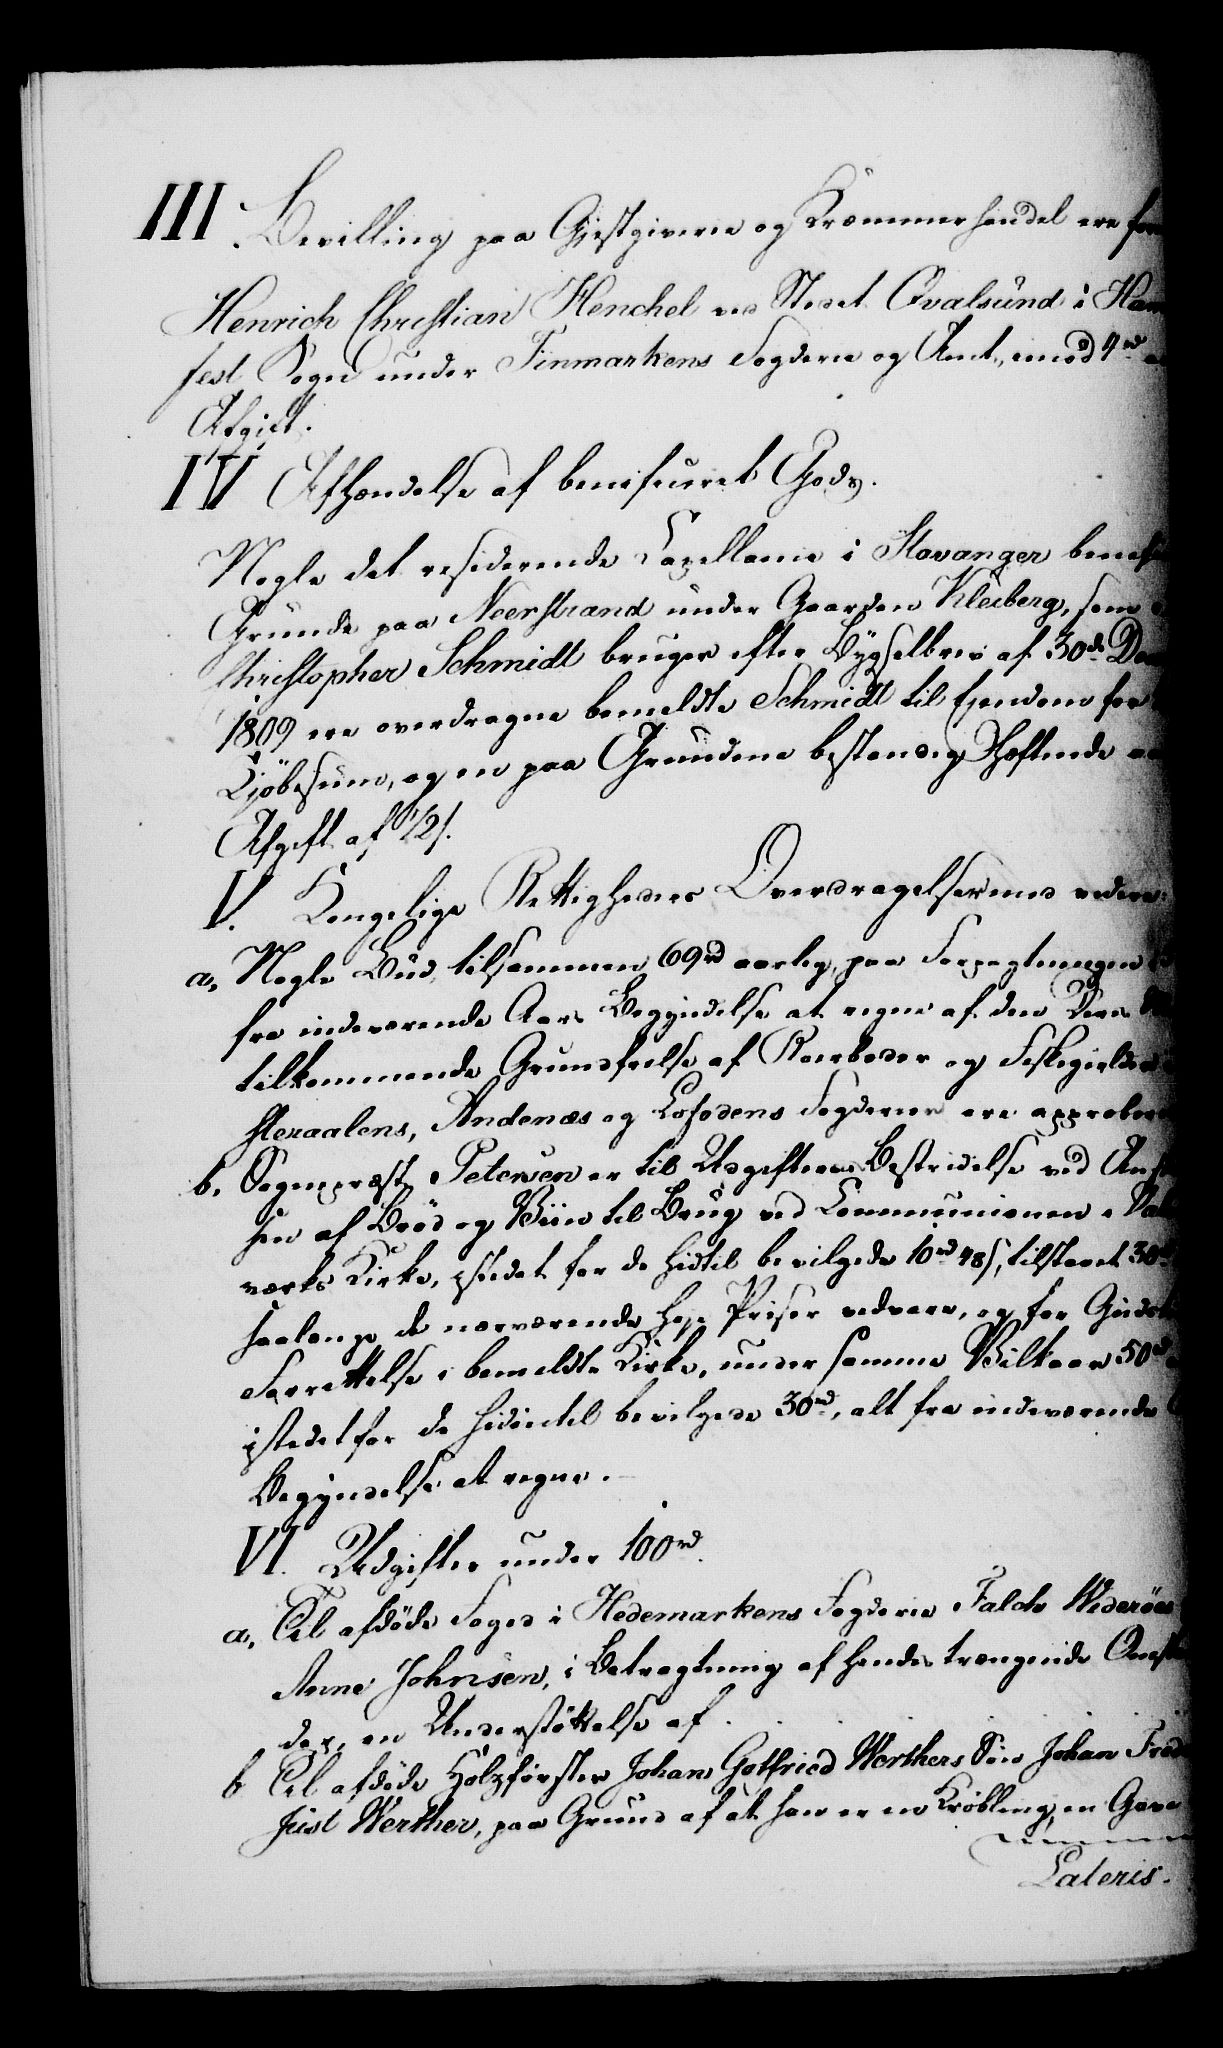 III. Bevilling paa Gjestgiverie og Kræmmerhandel ere for
Henrich Christian Henckel ved Stedet Qvalsund i Ham
fest Sogn under Finmarkens Fogderie og Amt, imod 4rd
Afgift.
IV Afhændelse af beneficeret Gods.
Nogle det residerende Capellanie i Stavanger benefi
Grunde paa Neerstrand under Gaarden Kleiberg, som
Christopher Schmidt bruger efter Bygselbrev af 30de De
1809 ere overdragne bemeldte Schmidt til Ejendom for
Kjøbesum, og en paa Grundene bestandig heftende aa
Afgift af 12s.
V. Kongelige Rettigheders Overdragelser med videre:
a, Nogle Bud, tilsammen 69rd aarlig, paa Forpagtningen
fra indeværende Aars Begyndelse at regne af den Deres
tilkommende Grundfrelse af Roerboder og Fiskegielder
steraalens, Andenæs og Lofodens Fogderier ere approbere
b. Sognepræst Petersen er til Udgifternes Bestridelse ved An
sen af Brød og Viin til Brug ved Communionen i Va
værks Kirke, istedet for de hidtil bevilgede 10rd 48s, tilstaaet 30rd
saalænge de nærværende høje Priser vedvare, og for Gudst
Forrettelse i bemeldte Kirke, under samme Vilkaar 50rd
istedet for de hidindtil bevilgede 30rd, alt fra indeværende
Begyndelse at regne.
VI. Udgifter under 100rd.
a, Til afdøde Foged i Hedemarkens Fogderie Falch Widerøes
Anne Johnsen, i Betragtning af hendes trængende Omst
der, en Understøttelse af
b Til afdøde Holzførster Johan Gotfried Werthers Søn Johan Fred
Just Werther, paa Grund af at han er en Krøbling, en Gave
Lateris.